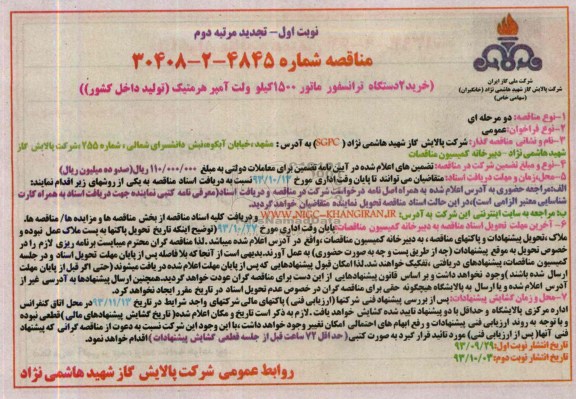 نوبت اول- تجدید مرتبه دوم
مناقصه شماره ۴۸۴۵-۲-۳۰۴۰۸
(خرید۲دستگاه ترانسفور ماتور ۱۵۰۰کیلو ولت آمپر هرمتیک (تولید داخل کشور))
شرکت ملی گاز ایران
شرکت پالایش گاز شهید هاشمی نژاد (خانگیران)
(سهامی خاص)
۱-نوع مناقصه: دو مرحله ای
۲-نوع فراخوان:عمومی
۳-نام و نشانی مناقصه گذار: شرکت پالایش گاز شهید هاشمی نژاد (SGPC) به آدرس: مشهد،خیابان آبکوه،نبش دانشسرای شمالی، شماره ۲۵۵ شرکت پالایش گاز
شهید هاشمی نژاد- دبیرخانه کمیسیون مناقصات
۴-نوع و مبلغ تضمین شرکت در مناقصه: تضمین های اعلام شده در آیین نامه تضمین برای معاملات دولتی به مبلغ ۱۱۰/۰۰۰/۰۰۰ ریال(صدو ده میلیون ریال)
۵-محل،زمان و مهلت دریافت اسناد: متقاضیان می توانند تا پایان وقت اداری مورخ ۹۳/۱۰/۱۳ نسبت به دریافت اسناد مناقصه به یکی از روشهای زیر اقدام نمایند:
الف:مراجعه حضوری به آدرس اعلام شده به همراه اصل نامه درخواست شرکت در مناقصه و دریافت اسناد(معرفی نامه کتبی نماینده جهت دریافت اسناد به همراه کارت
شناسایی معتبر الزامی است)،در این حالت اسناد مناقصه تحویل نماینده متقاضیان خواهد گردید.
ب: مراجعه به سایت اینترنتی این شرکت به آدرس: WWW.NIGC-KHANGIRAN.IR و دریافت کلیه اسناد مناقصه از بخش مناقصه ها و مزایده ها/ مناقصه ها.
۶-آخرین مهلت تحویل اسناد مناقصه به دبیرخانه کمیسیون مناقصات:پایان وقت اداری مورخ ۹۳/۱۰/۲۷ (توضیح اینکه تاریخ تحویل پاکتها به پست ملاک عمل نبوده و
ملاک،تحویل پیشنهادات و پاکتهای مناقصه، به دبیرخانه کمیسیون مناقصات واقع در آدرس اعلام شده میباشد .لذا مناقصه گران محترم میبایست برنامه ریزی لازم را در
خصوص تحویل به موقع پیشنهادات (چه از طریق پست و چه به صورت حضوری) به عمل آورند.بدیهی است از آنجا که بلا فاصله پس از پایان مهلت تحویل اسناد و در جلسه
کمیسیون مناقصات، پیشنهادهای دریافتی ،تفکیک خواهند شد.لذا امکان قبول پیشنهادهایی که پس از پایان مهلت اعلام شده دریافت میشوند (حتی اگر قبل از پایان مهلت
ارسال شده باشند )وجود نخواهد داشت و بر اساس قانون پیشنهادهایی از این دست برای مناقصه گران عودت خواهد گردید.همچنین ارسال پیشنهادها به آدرسی غیر از
آدرس اعلام شده و یا ارسال به پالایشگاه هیچگونه حقی برای مناقصه گران در خصوص عدم تحویل اسناد در تاریخ مقرر ایجاد نخواهد کرد.
۷-محل و زمان گشایش پیشنهادات: پس از بررسی پیشنهاد فنی شرکتها (ارزیابی فنی) پاکتهای مالی شرکتهای واجد شرایط در تاریخ ۹۳/۱۱/۱۳ در محل اتاق کنفرانس
اداره مرکزی پالایشگاه و حداقل با دو پیشنهاد تایید شده گشایش خواهد یافت .لازم به ذکر است تاریخ و مکان اعلام شده(تاریخ گشایش پیشنهادهای مالی )قطعی نبوده
و با توجه به روند ارزیابی فنی پیشنهادات و رفع ابهام های احتمالی امکان تغییر وجود خواهد داشت،با این وجود این شرکت نسبت به دعوت از مناقصه گرانی که پیشنهاد
فنی آنها(پس از ارزیابی فنی) مورد تائید قرار گیرد به صورت کتبی (حداقل ۷۲ ساعت قبل از جلسه قطعی گشایش پیشنهادات )اقدام خواهد نمود.
تاریخ انتشار نوبت اول:۹۳/۰۹/۲۹
تاریخ انتشار نوبت دوم:۹۳/۱۰/۰۳
روابط عمومی شرکت پالایش گاز شهید هاشمی نژاد